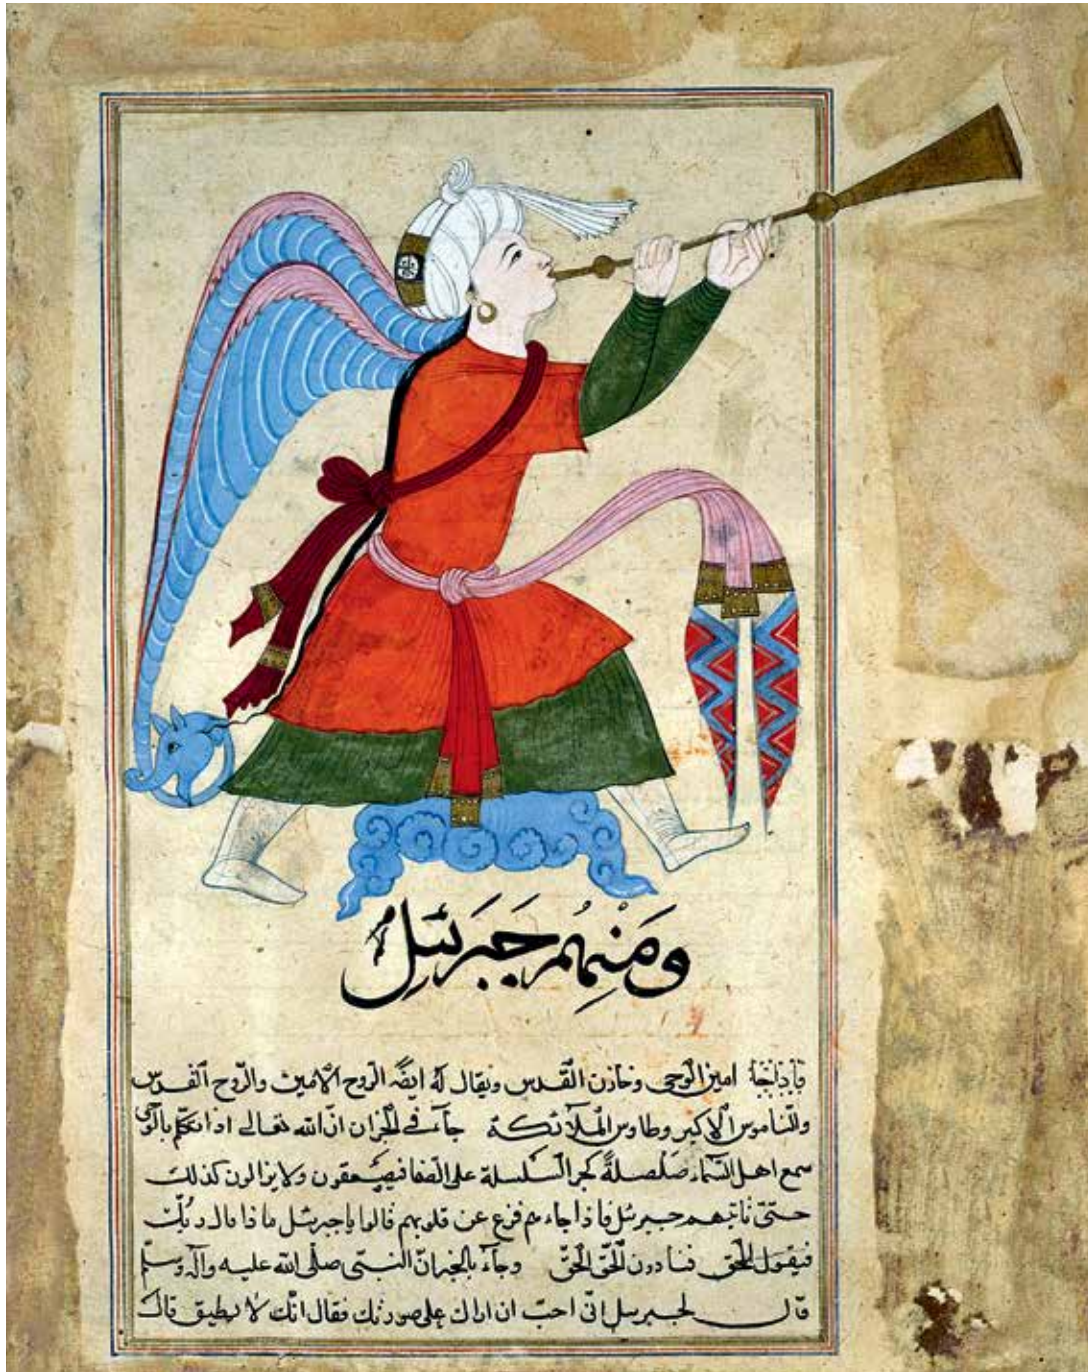 وَمَنِهُم جَبرَئيلُ
امين الوحى وخازن القدس ويقال له ايضًا الروح الامين والروح القدس
والناموس الاكبر وطاوس الملآئكة جآء في الخبر ان الله تعالى اذا تكلم بالوحى
سمع اهل السماء صلصلةً كجر السلسلة على الصفا فيصعقون ولا يزالون كذلك
حتى ياتيهم جبرئيل فاذا جاءهم فزع عن قلوبهم قالوا يا جبرئيل ماذا قال ربك
فيقول الحق فينادون الحق الحق وجآء بالخبر ان النبى صلى الله عليه وآله وسلم
قال لجبرئيل انى احب ان اراك على صورتك فقال انك لا تطيق قال